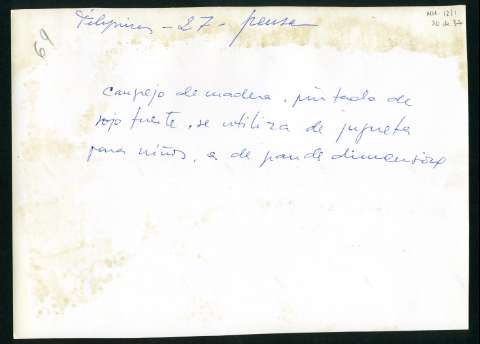 Filipinas - 27 - prensa
69
cangrejo de madera, pintado de
rojo fuerte, se utiliza de jugueta
para niños, es de grandes dimensiones